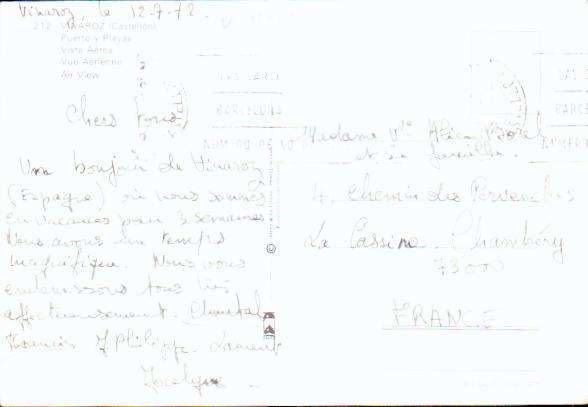 Vinaroz, le 12-7-72.
212 - VINAROZ (Castellón)
Puerto y Playas
Vista Aérea
Vue Aérienne
Air View
Chers tous
Un bonjour de Vinaroz
(Espagne) où nous sommes
en vacances pour 3 semaines
Nous avons un temps
magnifique. Nous vous
embrassons tous très
affectueusement. Chantal
Francis J Philippe. Laurent
Jocelyne
BARCELONA
BARCELONA
NUMERO
Madame Vve Alice Borel
et sa famille.
4. Chemin des Pervenches
La Cassine. Chambéry
73000
FRANCE